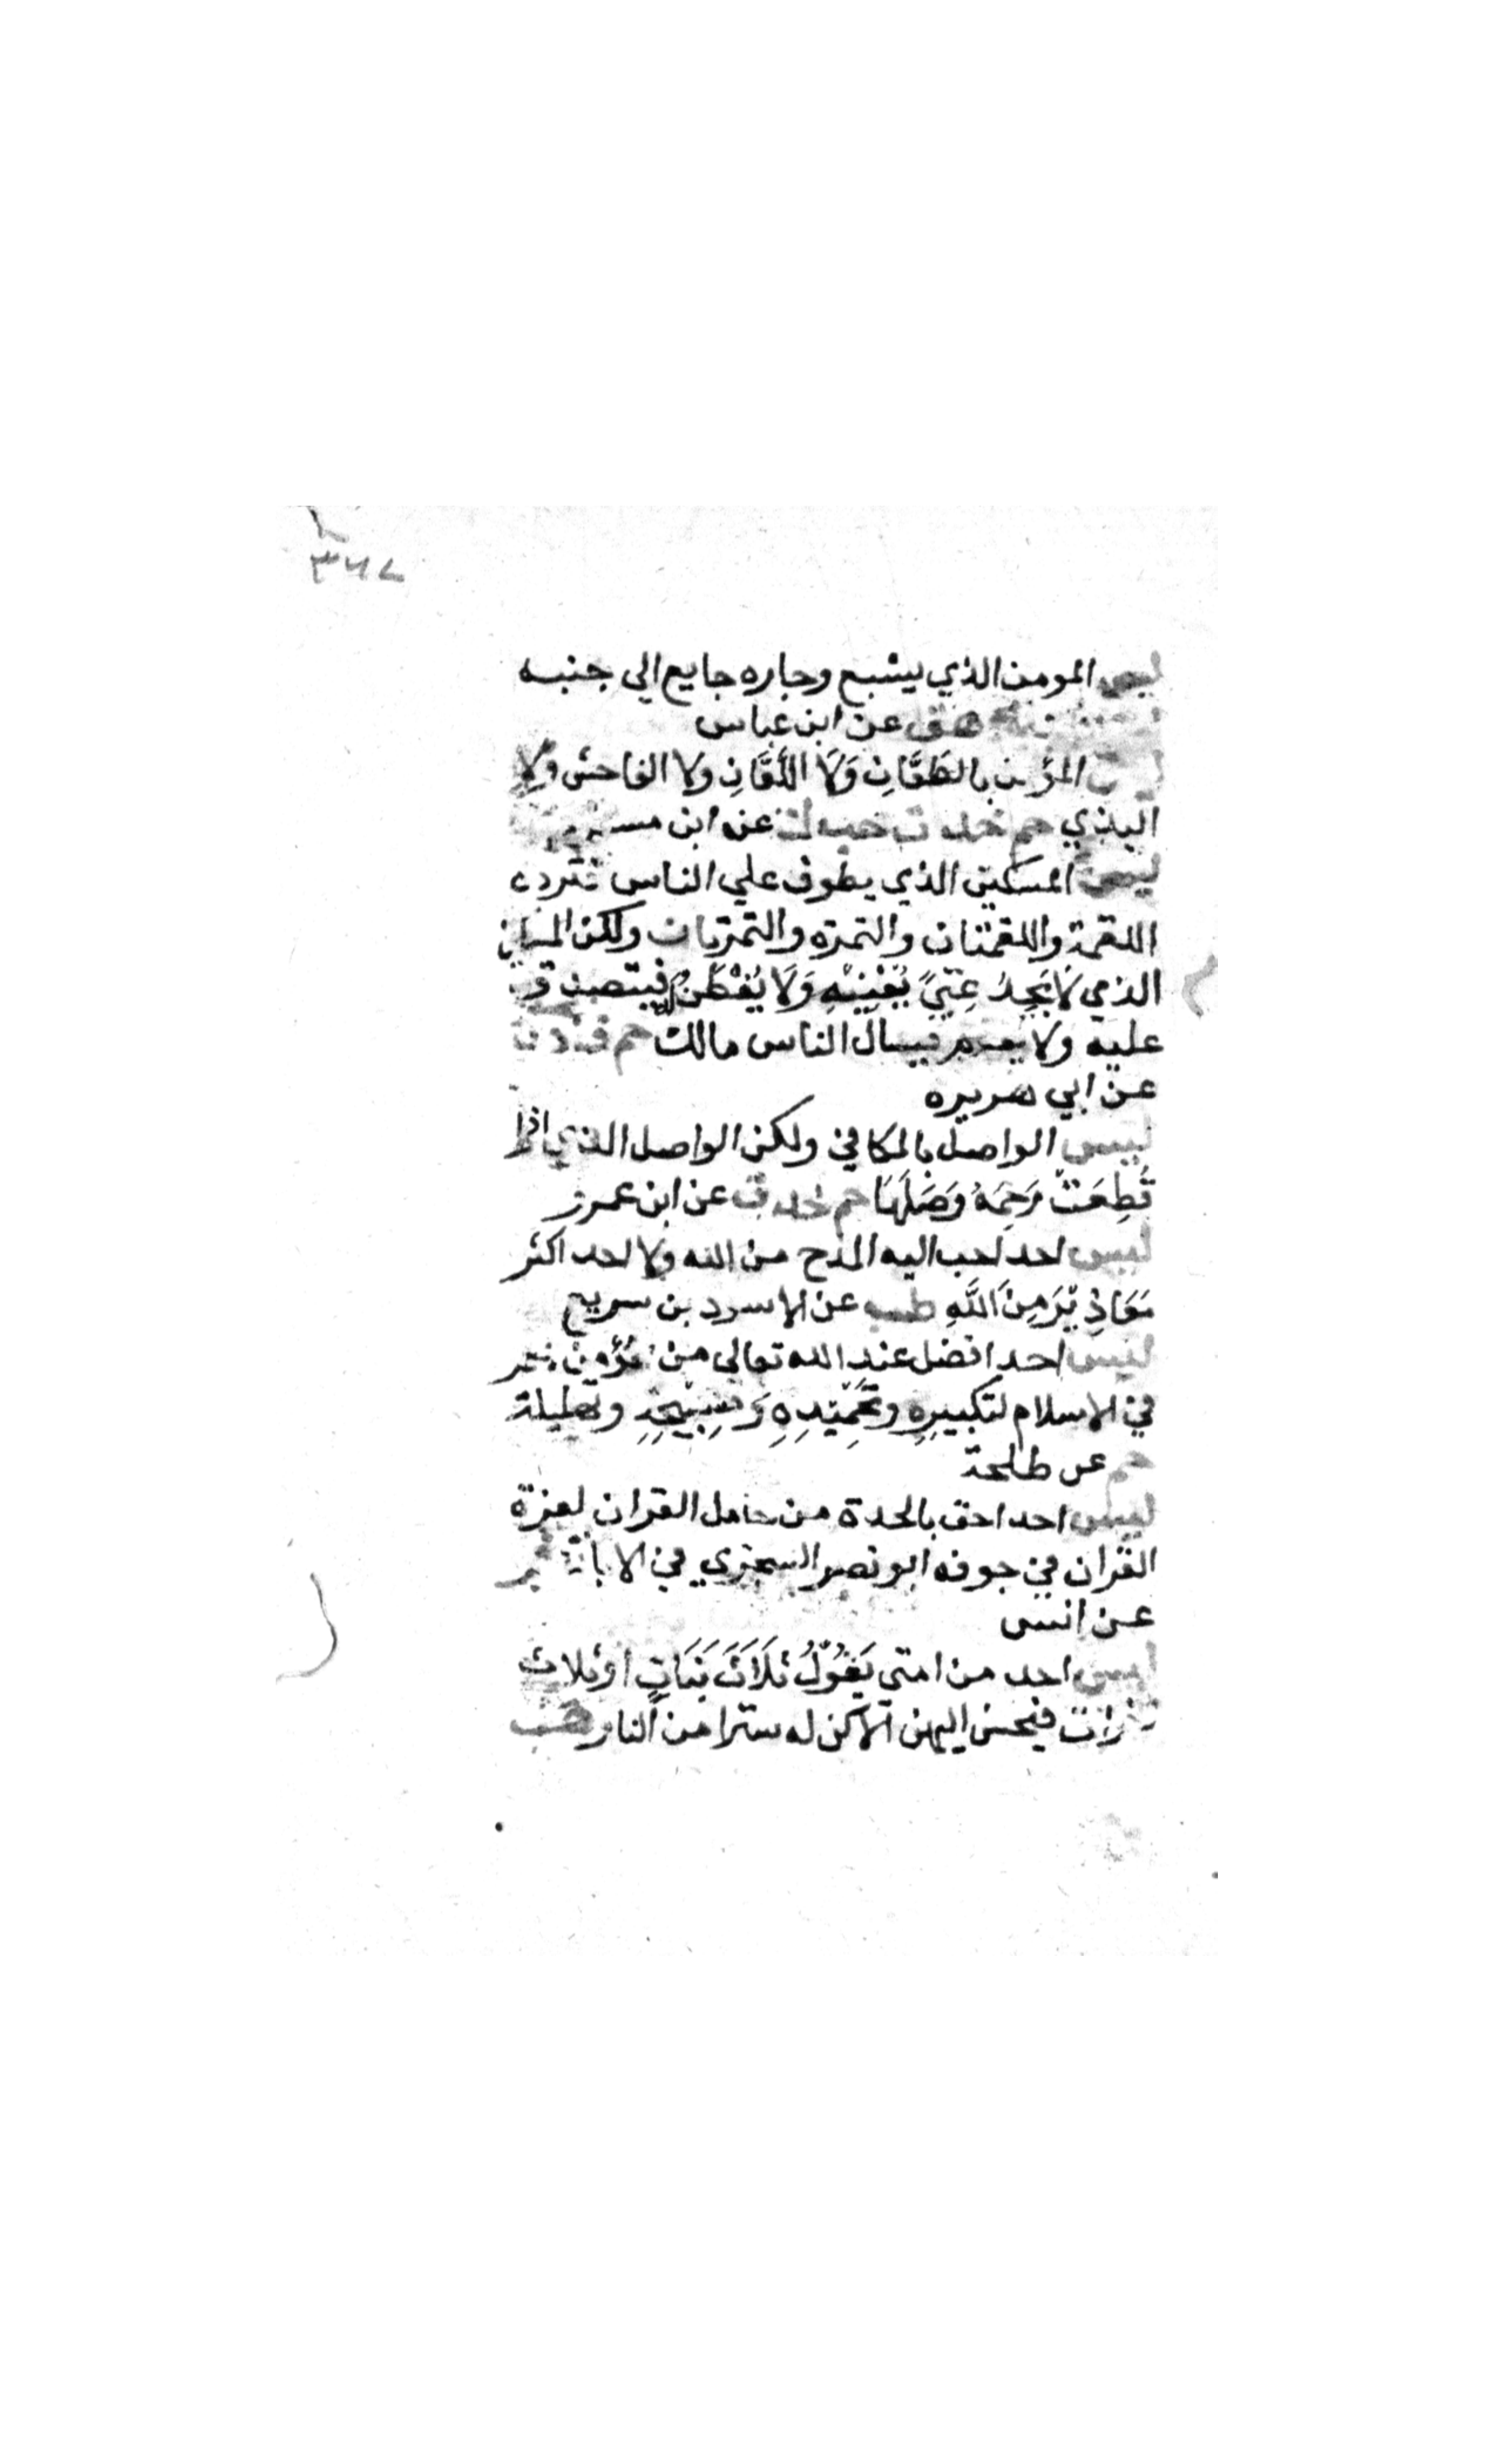 ٣٦٧
ليس المومن الذي يشبع وجاره جايع الي جنبه
هق عن ابن عباس
المؤمن بالطَعَّانِ وَلَا اللَّعَّانِ ولا الفاحش ولا
البذي حم خد ت حب ك عن ابن مسعود
ليس المسكين الذي يطوف علي الناس فترده
اللقمة واللقمتان والتمره والتمرتان ولكن المسكين
الذي لَا يَجِدُ غِنيً يُغْنِيْهِ وَلَا يُفْطَنُ له فيتصدق
عليه ولا يقوم فيسال الناس مالك حم ق د ن
عن ابي هريره
ليس الواصل بالمكافي ولكن الواصل الذي اذا
قُطِعَتْ رَحِمَهُ وَصَلَهَا حم خ د ت عن ابن عمرو
ليس احد احب اليه المدح من الله ولا احد اكثر
مَعَاذِيْرَ مِنَ اللَّهِ طب عن الاسود بن سريع
ليس احد افضل عند الله تعالي من مُؤمِن يعمر
في الاسلام لتكبيرِهِ وتَحْمِيْدِهِ وَتسبِيْحِهِ وتهليلة
حم عن طلحة
ليس احد احق بالحدة من حامل القران لعزة
القران في جوفه ابو نصر السجزي في الابانة فر
عن انس
ليس احد من امتي يَعُوْلُ ثَلَاَثَ بَنَاتٍ او ثلاث
اخوات فيحسن اليهن الا كن له سترا من النار هب